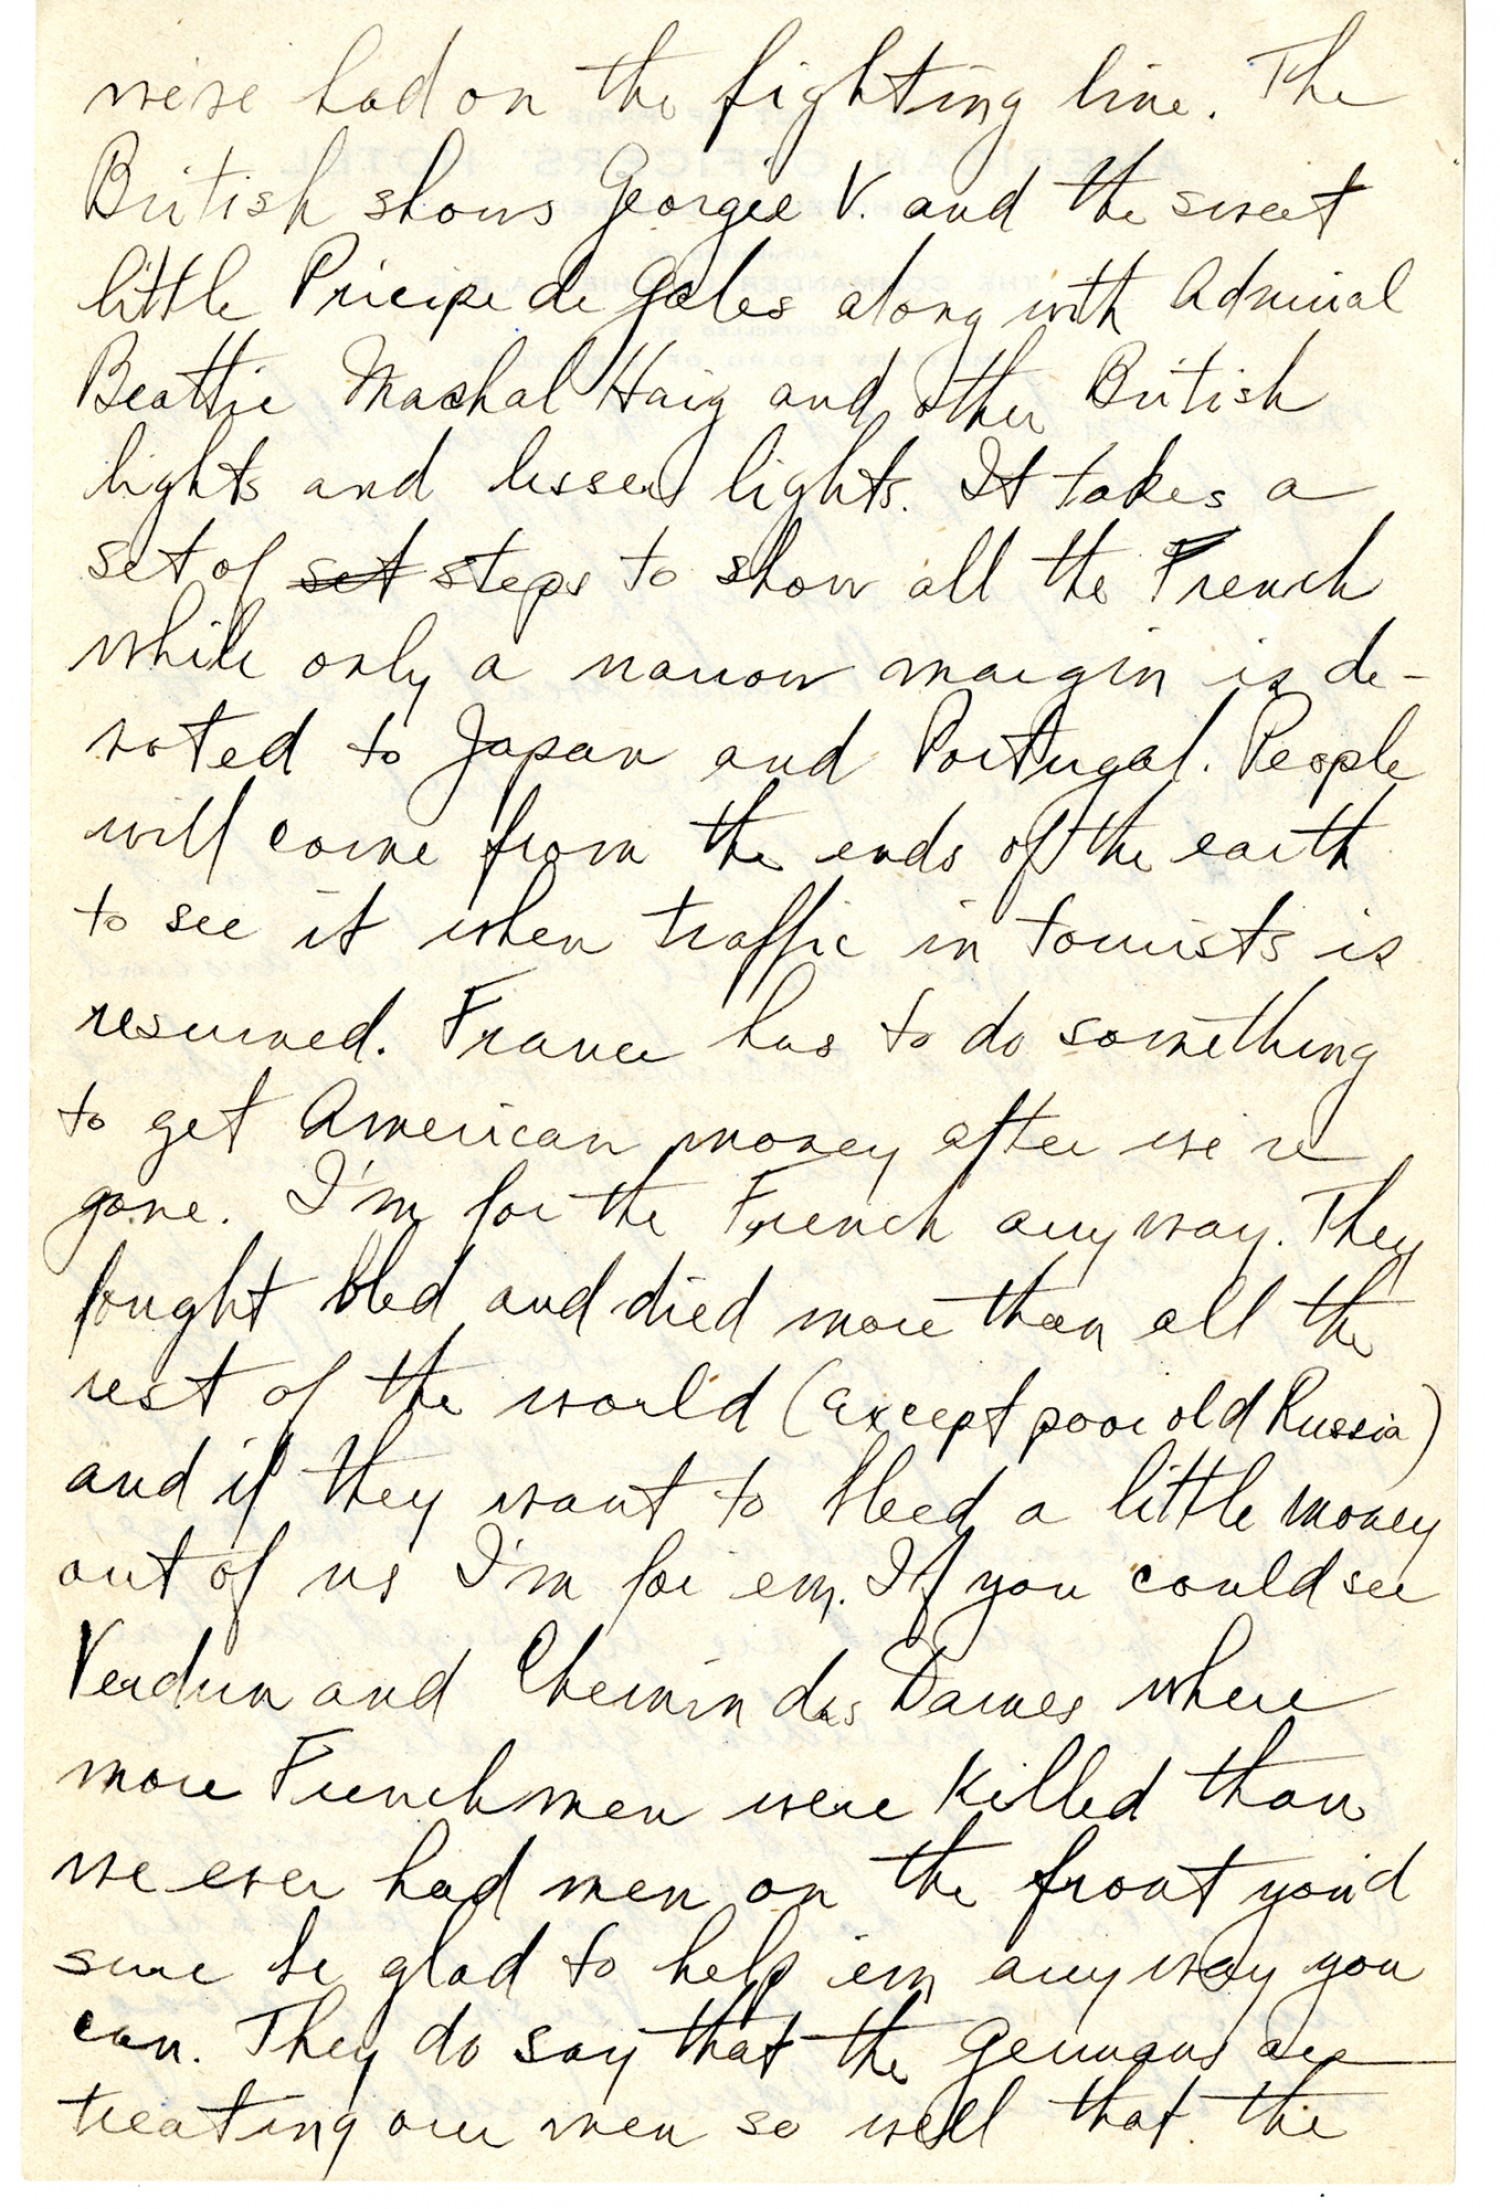 we've had on the fighting line. The
British shows Georgie V. and the sweet
little Pricipe de Gales along with Admiral
Beattie Mashal Haig and other British
lights and lesser lights. It takes a
set of set steps to show all the French
while only a narrow margin is de-
voted to Japan and Portugal. People
will come from the ends of the earth
to see it when traffic in tourists is
resumed. France has to do something
to get American money after we're
gone. I'm for the French anyway. They
fought bled and died more than all the
rest of the world (except poor old Russia)
and if they want to bleed a little money
out of us I'm for em. If you could see
Verdun and Chemin des Dames where
more Frenchmen were killed than
we ever had men on the front you'd
sure be glad to help 'em anyway you
can. They do say that the Germans are
treating our men so well that the